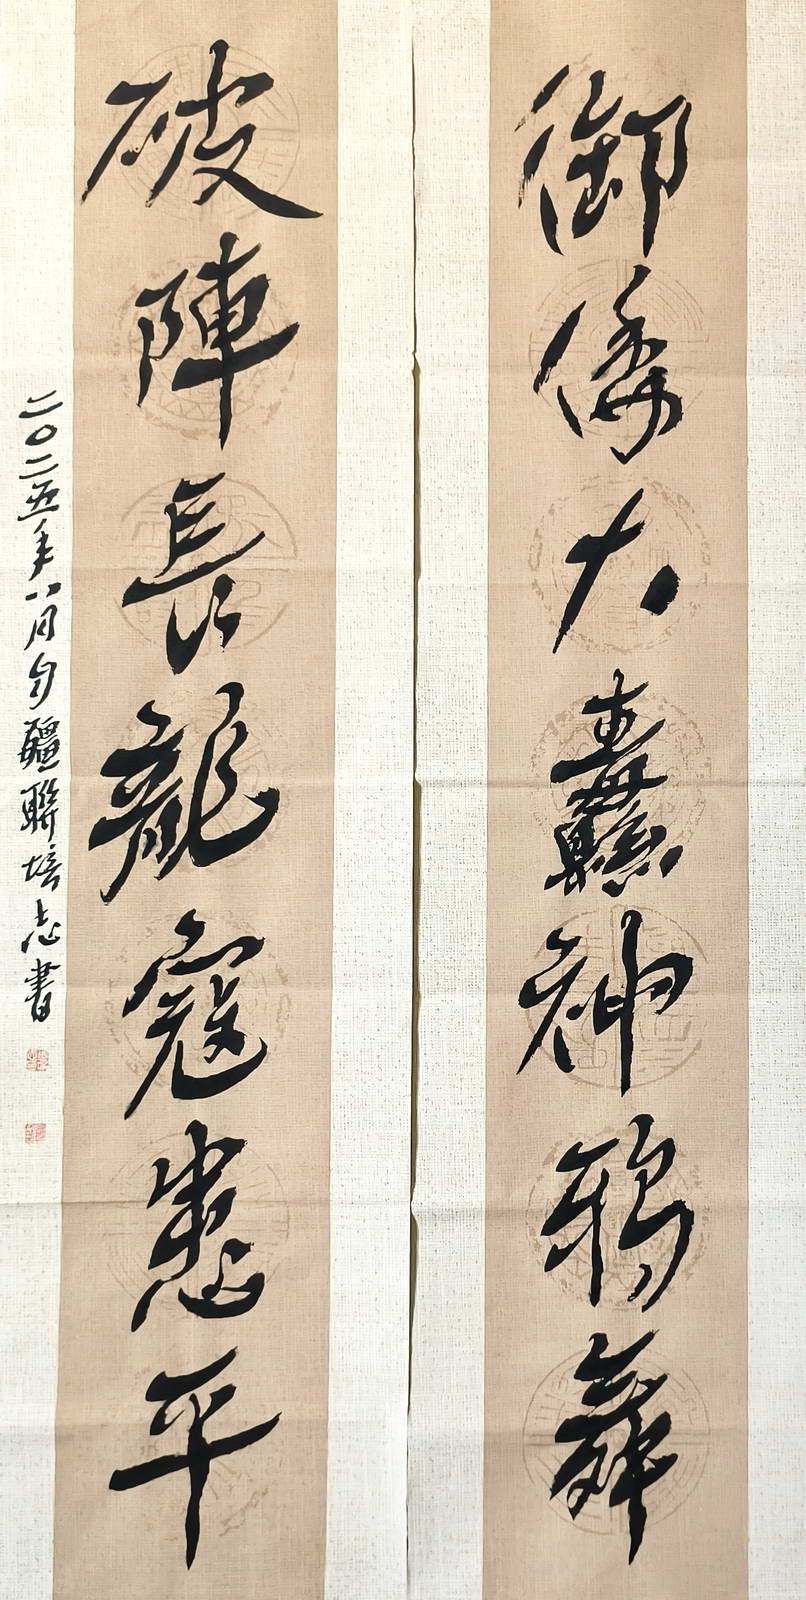 御倭大纛神鴉舞
破陣長龍寇患平
二〇二五年八月勻疆聯培志書